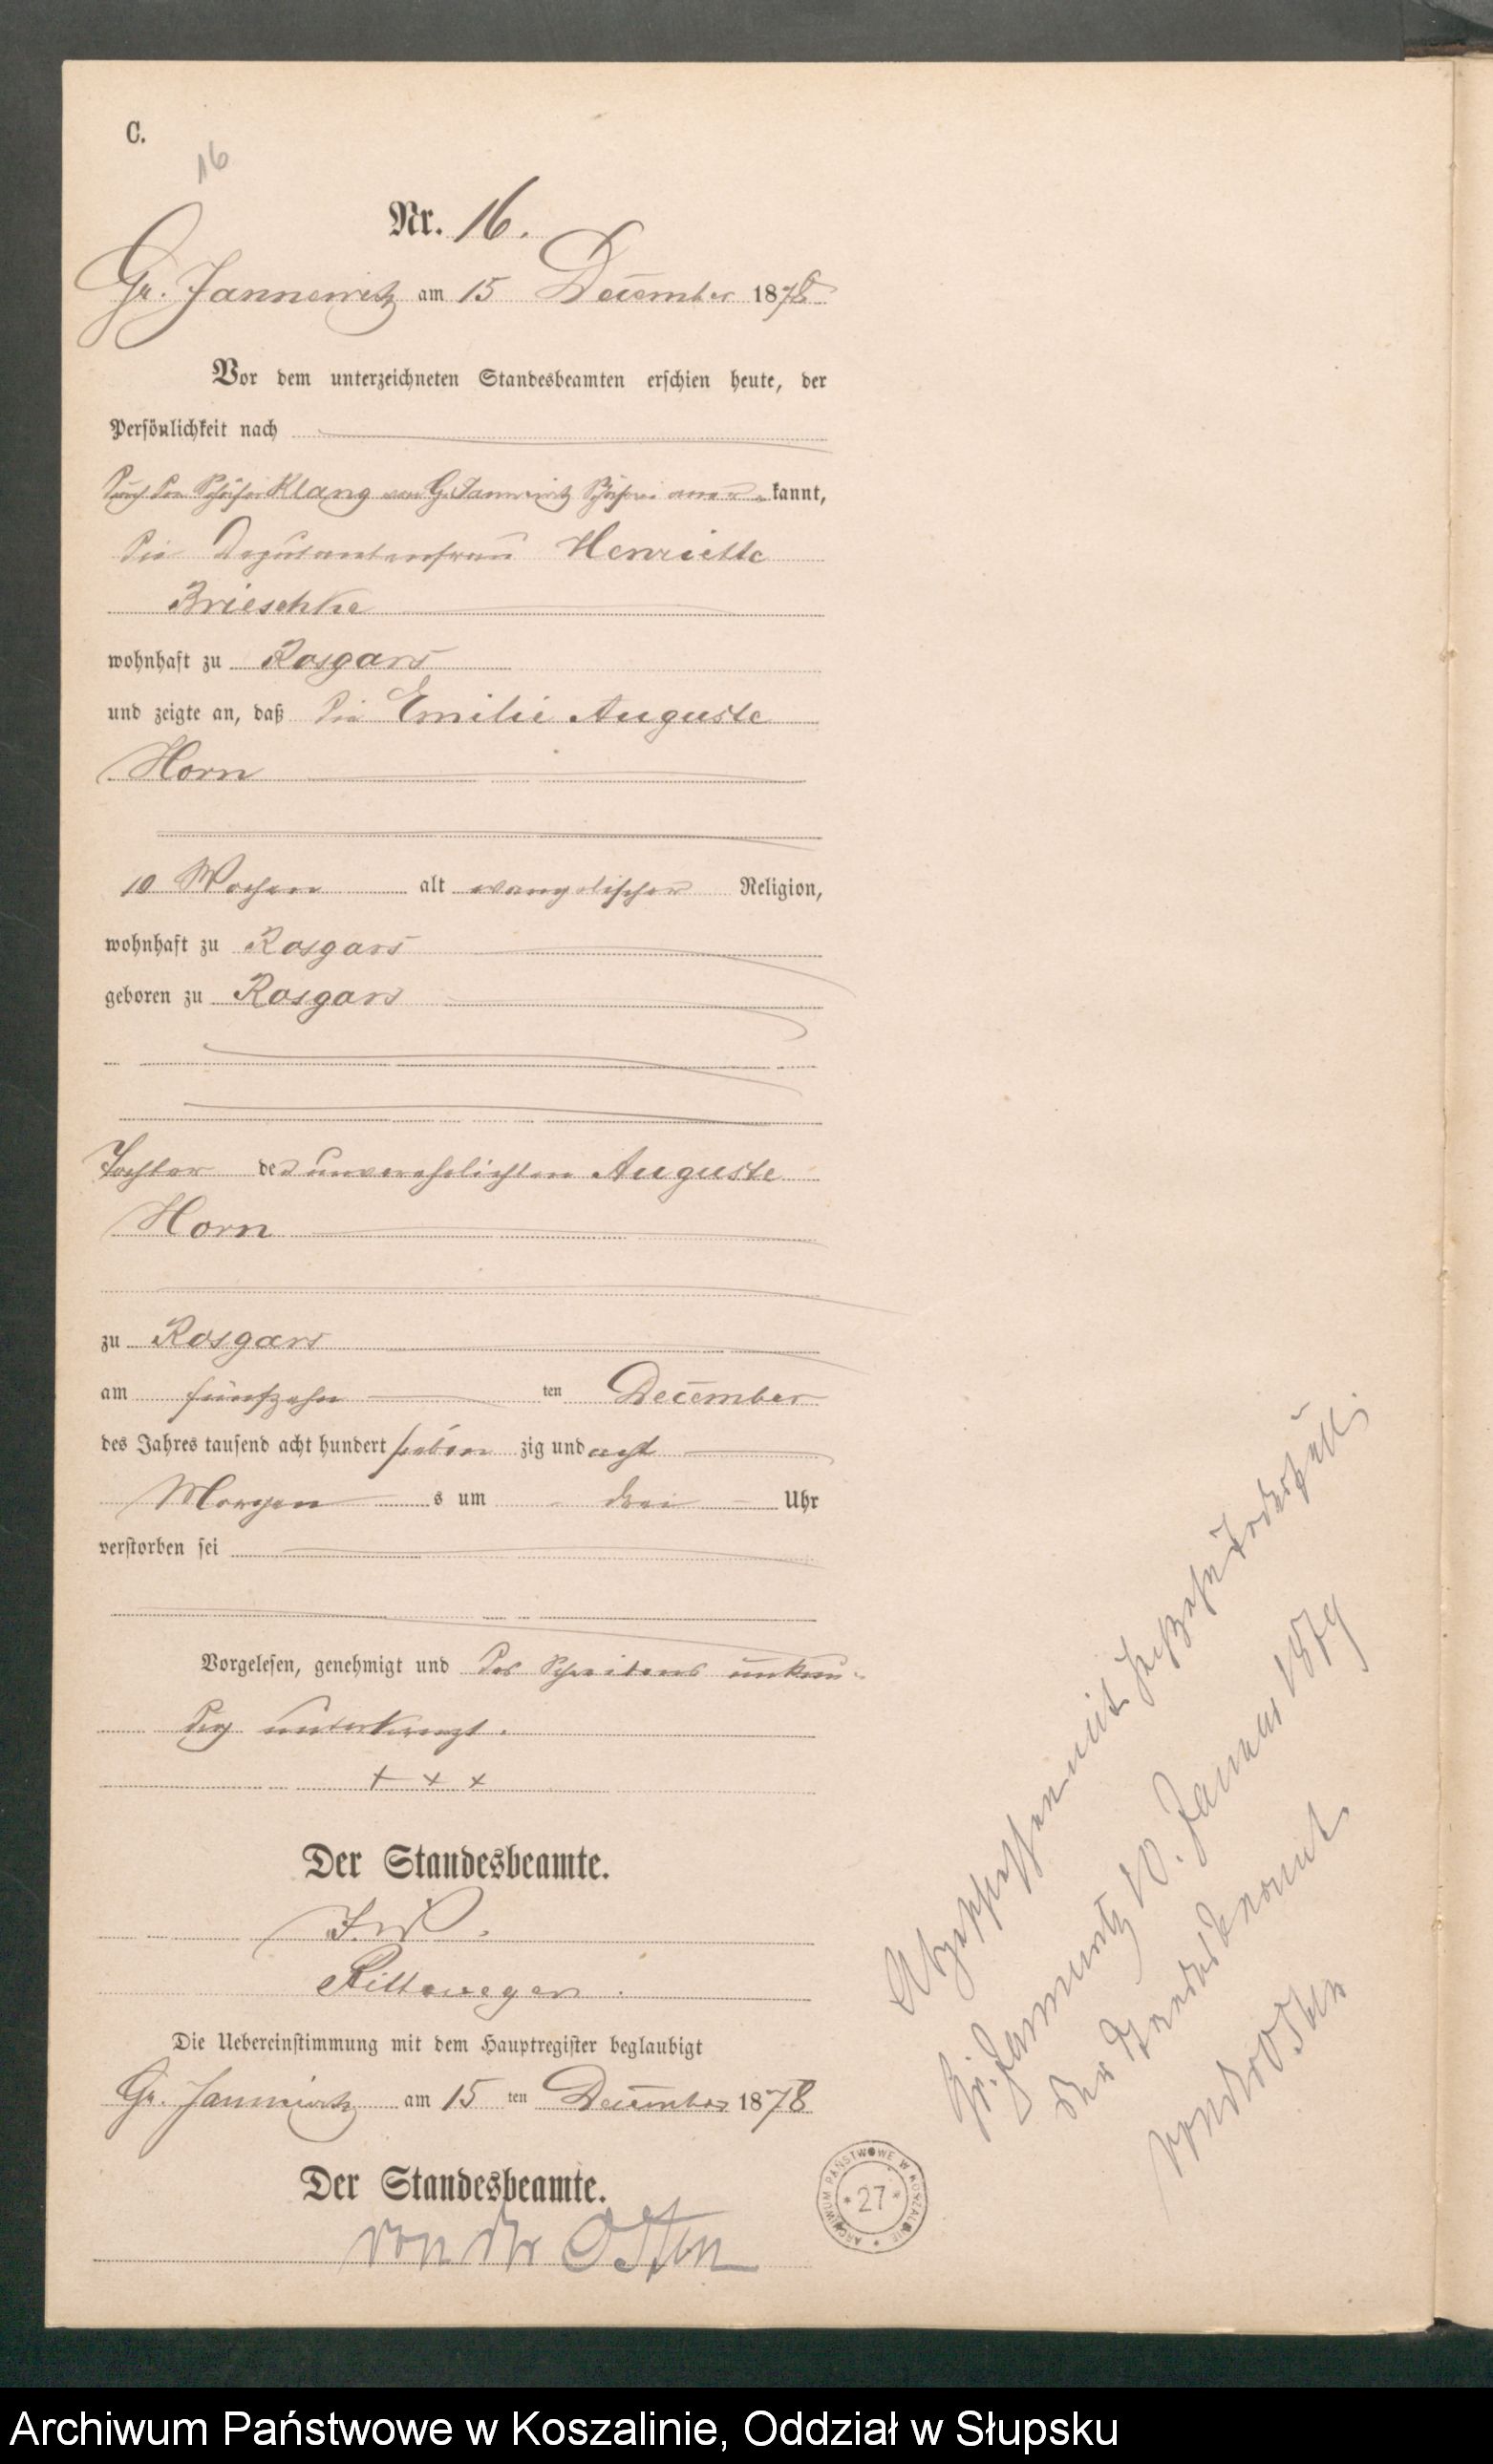 C.
16
Nr. 16.
Gr. Jannewitz am 15 December 1878
Vor dem unterzeichneten Standesbeamten erschien heute, der
Persönlichkeit nach
durch den Schäfer Klang von Gr. Jannewitz Schäferei aner- kannt,
die Deputantenfrau Henriette
Brieschke
wohnhaft zu Rosgars
und zeigte an, daß die Emilie Auguste
Horn
10 Wochen alt evangelischer Religion,
wohnhaft zu Rosgars
geboren zu Rosgars
Tochter der unverehelichten Auguste
Horn
zu Rosgars
am fünfzehn ten December
des Jahres tausend acht hundert sieben zig und acht
Morgen s um drei Uhr
verstorben sei
Vorgelesen, genehmigt und des Schreibens unkun-
dig unterkreuzt.
+ + +
Der Standesbeamte.
I. V.
Die Uebereinstimmung mit dem Hauptregister beglaubigt
Gr. Jannewitz am 15 ten December 1878
Der Standesbeamte.
von der Osten
Abgeschlossen mit sechszehn Todesfällen
Gr. Jannewitz 10. Januar 1879
Der Standesbeamte
von der Osten
ARCHIWUM PAŃSTWOWE W KOSZALINIE
* 27 *
Archiwum Państwowe w Koszalinie, Oddział w Słupsku